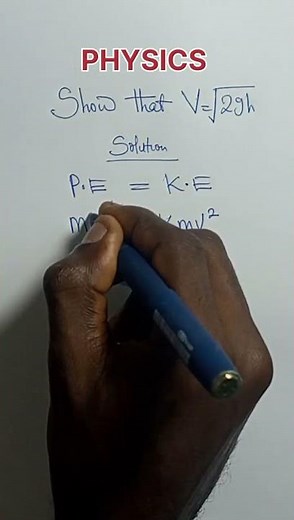 PHYSICS
Show that V=√2gh
Solution
P.E = K.E
m ½mv²